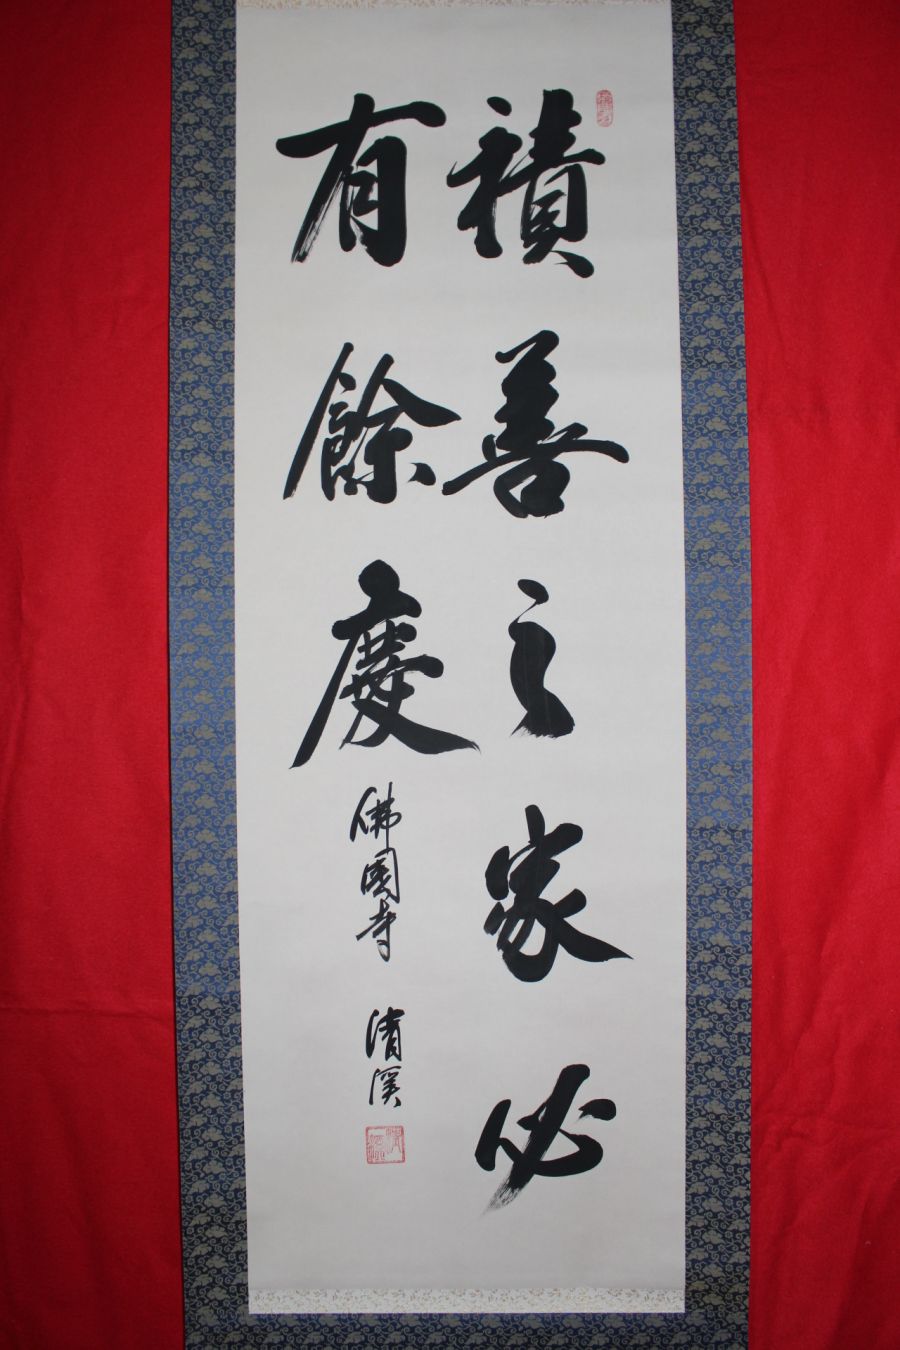 積善之家必
有餘慶
佛國寺 清溪